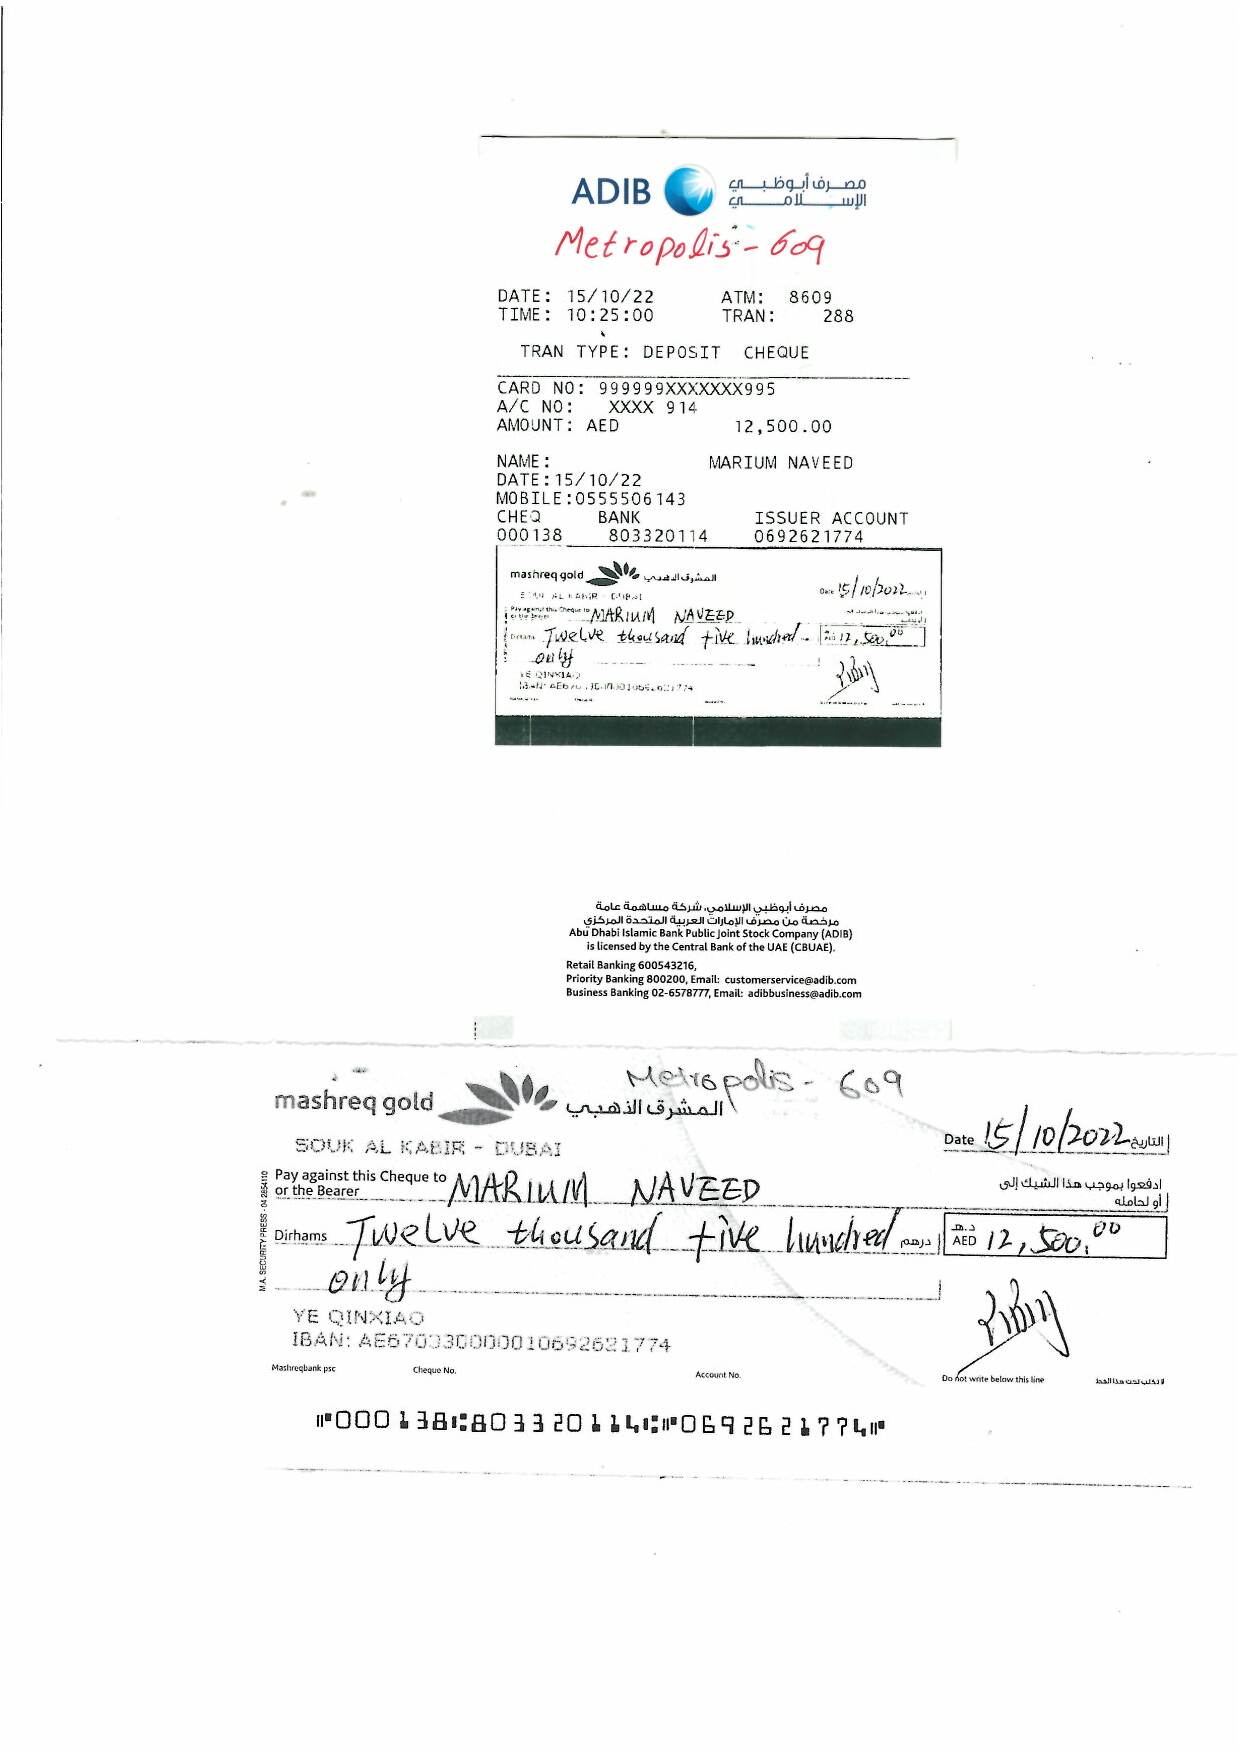 ADIB مصرف أبوظبي الإسلامي
Metropolis - 609
DATE: 15/10/22 ATM: 8609
TIME: 10:25:00 TRAN: 288
TRAN TYPE: DEPOSIT CHEQUE
CARD NO: 999999XXXXXXX995
A/C NO: XXXX 914
AMOUNT: AED 12,500.00
NAME: MARIUM NAVEED
DATE:15/10/22
MOBILE:0555506143
CHEQ BANK ISSUER ACCOUNT
000138 803320114 0692621774
mashreq gold المشرق الذهبي
Date 15/10/2022
Pay against this Cheque to MARIUM NAVEED
or the Bearer
Dirhams Twelve thousand five hundred AED 12,500.00
only
YE QINXIAO
مصرف أبوظبي الإسلامي، شركة مساهمة عامة
مرخصة من مصرف الإمارات العربية المتحدة المركزي
Abu Dhabi Islamic Bank Public Joint Stock Company (ADIB)
is licensed by the Central Bank of the UAE (CBUAE).
Retail Banking 600543216,
Priority Banking 800200, Email: customerservice@adib.com
Business Banking 02-6578777, Email: adibbusiness@adib.com
Metropolis - 609
mashreq gold المشرق الذهبي
SOUK AL KABIR - DUBAI
Date 15/10/2022 التاريخ
Pay against this Cheque to MARIUM NAVEED ادفعوا بموجب هذا الشيك إلى
or the Bearer أو لحامله
Dirhams Twelve thousand five hundred درهم د.هـ AED 12,500.00
only
M.A. SECURITY PRESS - 04 2854110
YE QINXIAO
IBAN: AE670330000010692621774
Mashreqbank psc Cheque No. Account No. Do not write below this line لا تكتب تحت هذا الخط
⑈000138⑆803320114⑆⑈0692621774⑈